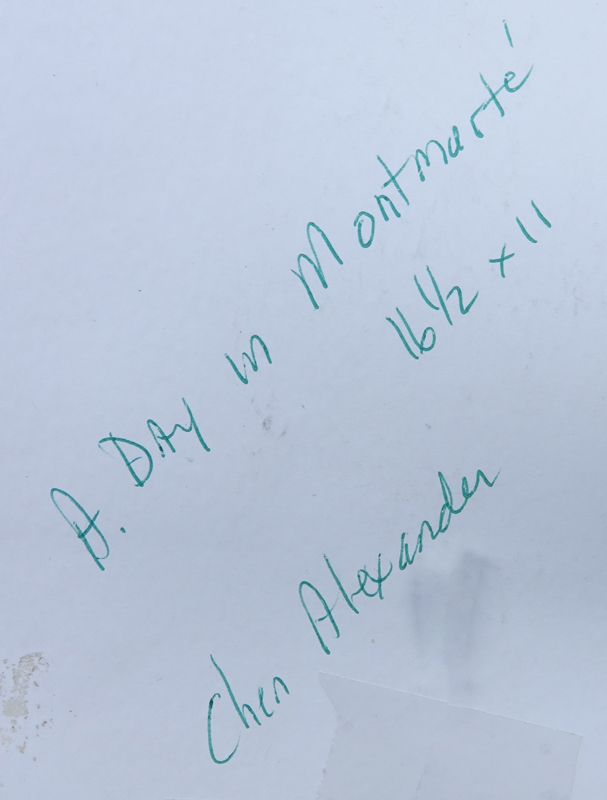 A. DAY in Montmarté
16 1/2 x 11
Chen Alexander